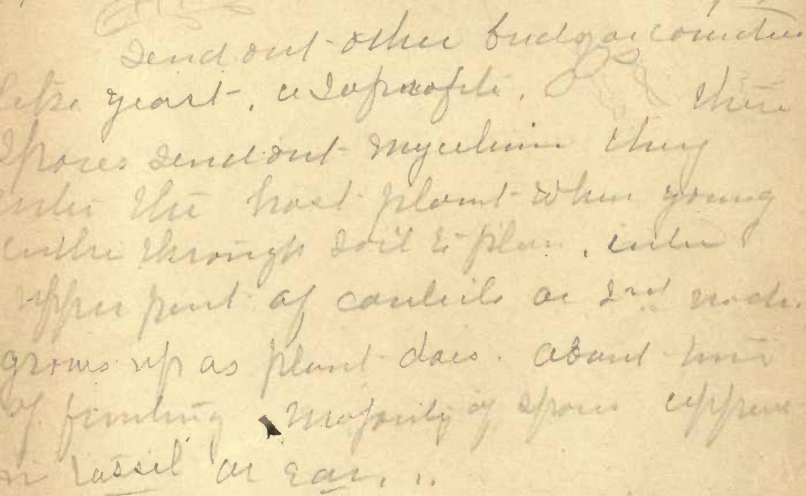 send out other buds or conidia
like yeast, a Saprofite, these
spores send out mycelium they
enter the host plant when young
either through soil to plan, enter
upper part of or 2nd node
grows up as plant does. about time
of fruiting majority of spores appear
in tassel or ear.